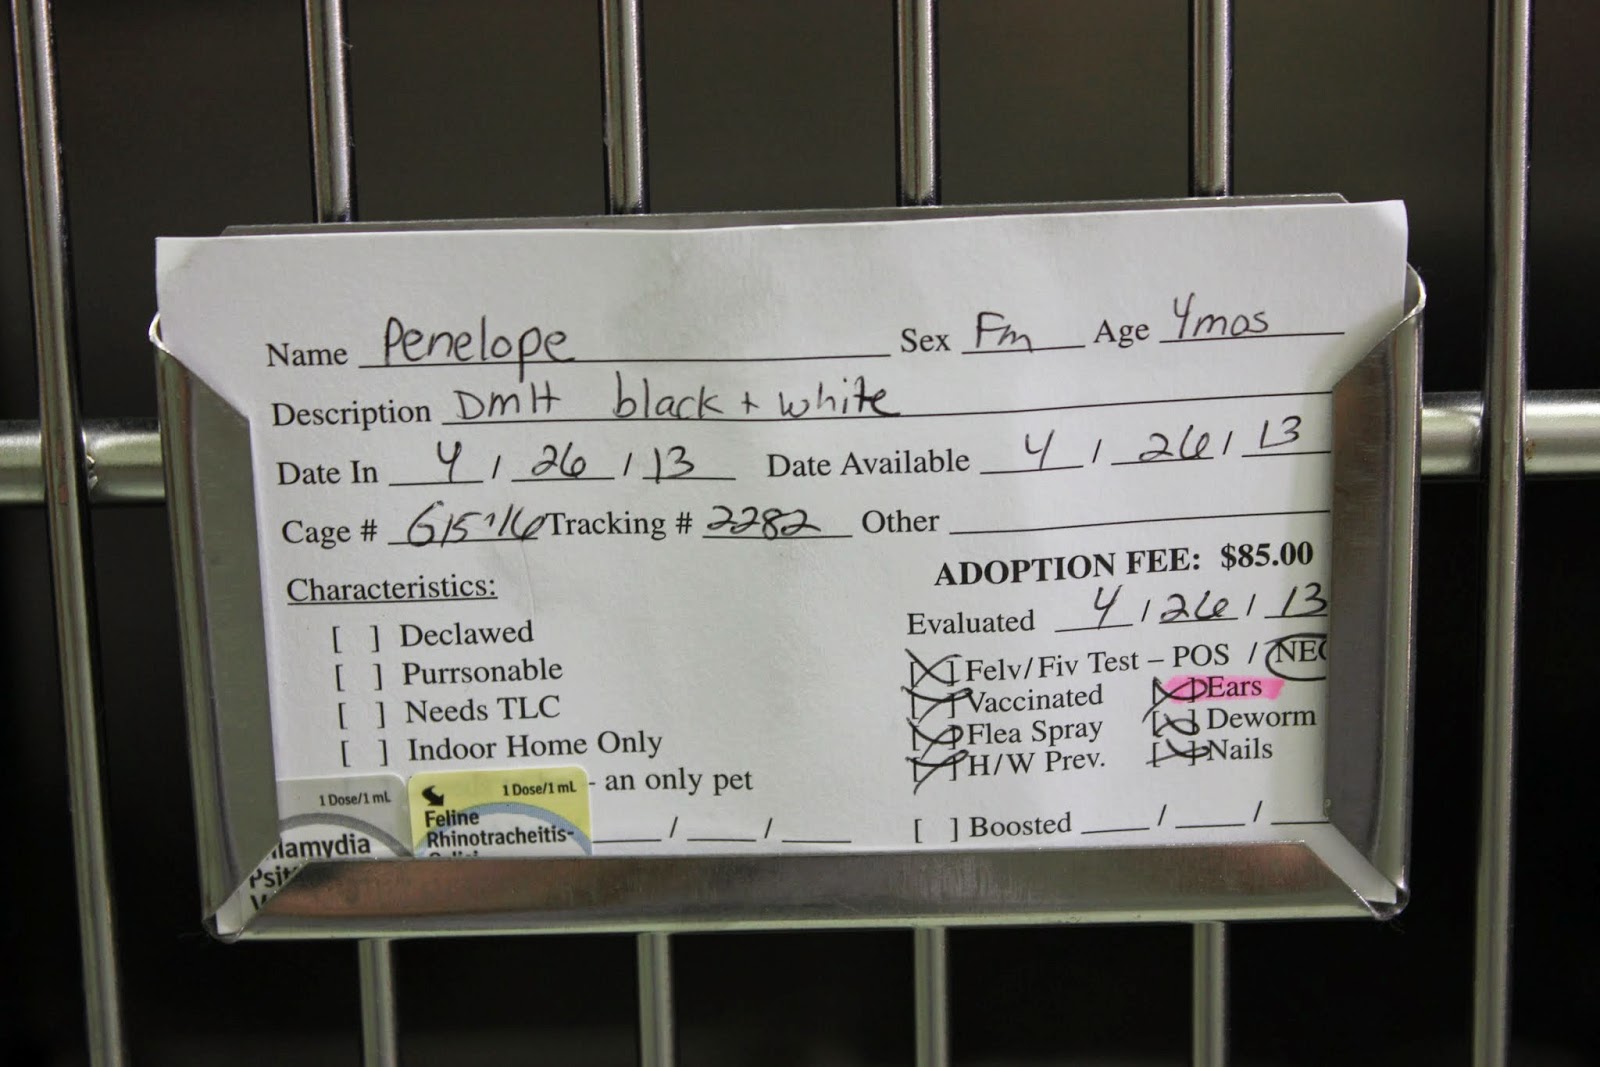 Name Penelope Sex Fm Age 4mos
Description DmH black + white
Date In 4 / 26 / 13 Date Available 4 / 26 / 13
Cage # Tracking # 2282 Other
ADOPTION FEE: $85.00
Characteristics:
Evaluated 4 / 26 / 13
[ ] Declawed
[ ] Purrsonable
[ ] Needs TLC
[ ] Indoor Home Only
- an only pet
[X] Felv/Fiv Test – POS / NEG
[X] Vaccinated [X] Ears
[X] Flea Spray [X] Deworm
[X] H/W Prev. [X] Nails
/ /
[ ] Boosted / /
1 Dose/1 mL
lamydia
Psit
1 Dose/1 mL
Feline
Rhinotracheitis-